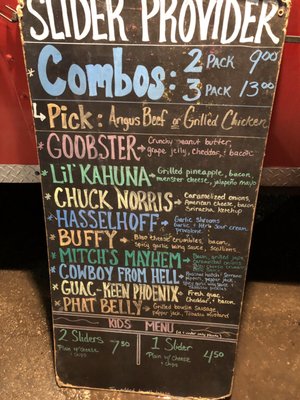 SLIDER PROVIDER
Combos: 2 PACK 9.00
3 PACK 13.00
Pick: Angus Beef or Grilled Chicken
* GOOBSTER → Crunchy peanut butter,
grape jelly, cheddar, & bacon
* LiL' KAHUNA → Grilled pineapple, bacon,
muenster cheese, jalapeño mayo
* CHUCK NORRIS → Caramelized onions,
American cheese, bacon,
Sriracha ketchup
* HASSELHOFF → Garlic Shrooms
garlic & herb sour cream,
provolone
* BUFFY → Bleu cheese crumbles, bacon,
spicy garlic wing sauce, scallions
* MITCH'S MAYHEM → Bacon, grilled
* COWBOY FROM HELL →
* GUAC-KEEN PHOENIX → Fresh guac,
Cheddar, & bacon
* PHAT BELLY → Grilled boudin Sausage,
pepper jack, Tabasco mustard
KIDS MENU
2 Sliders 7.50
Plain w/ cheese
& chips
1 Slider 4.50
Plain w/ cheese
& chips